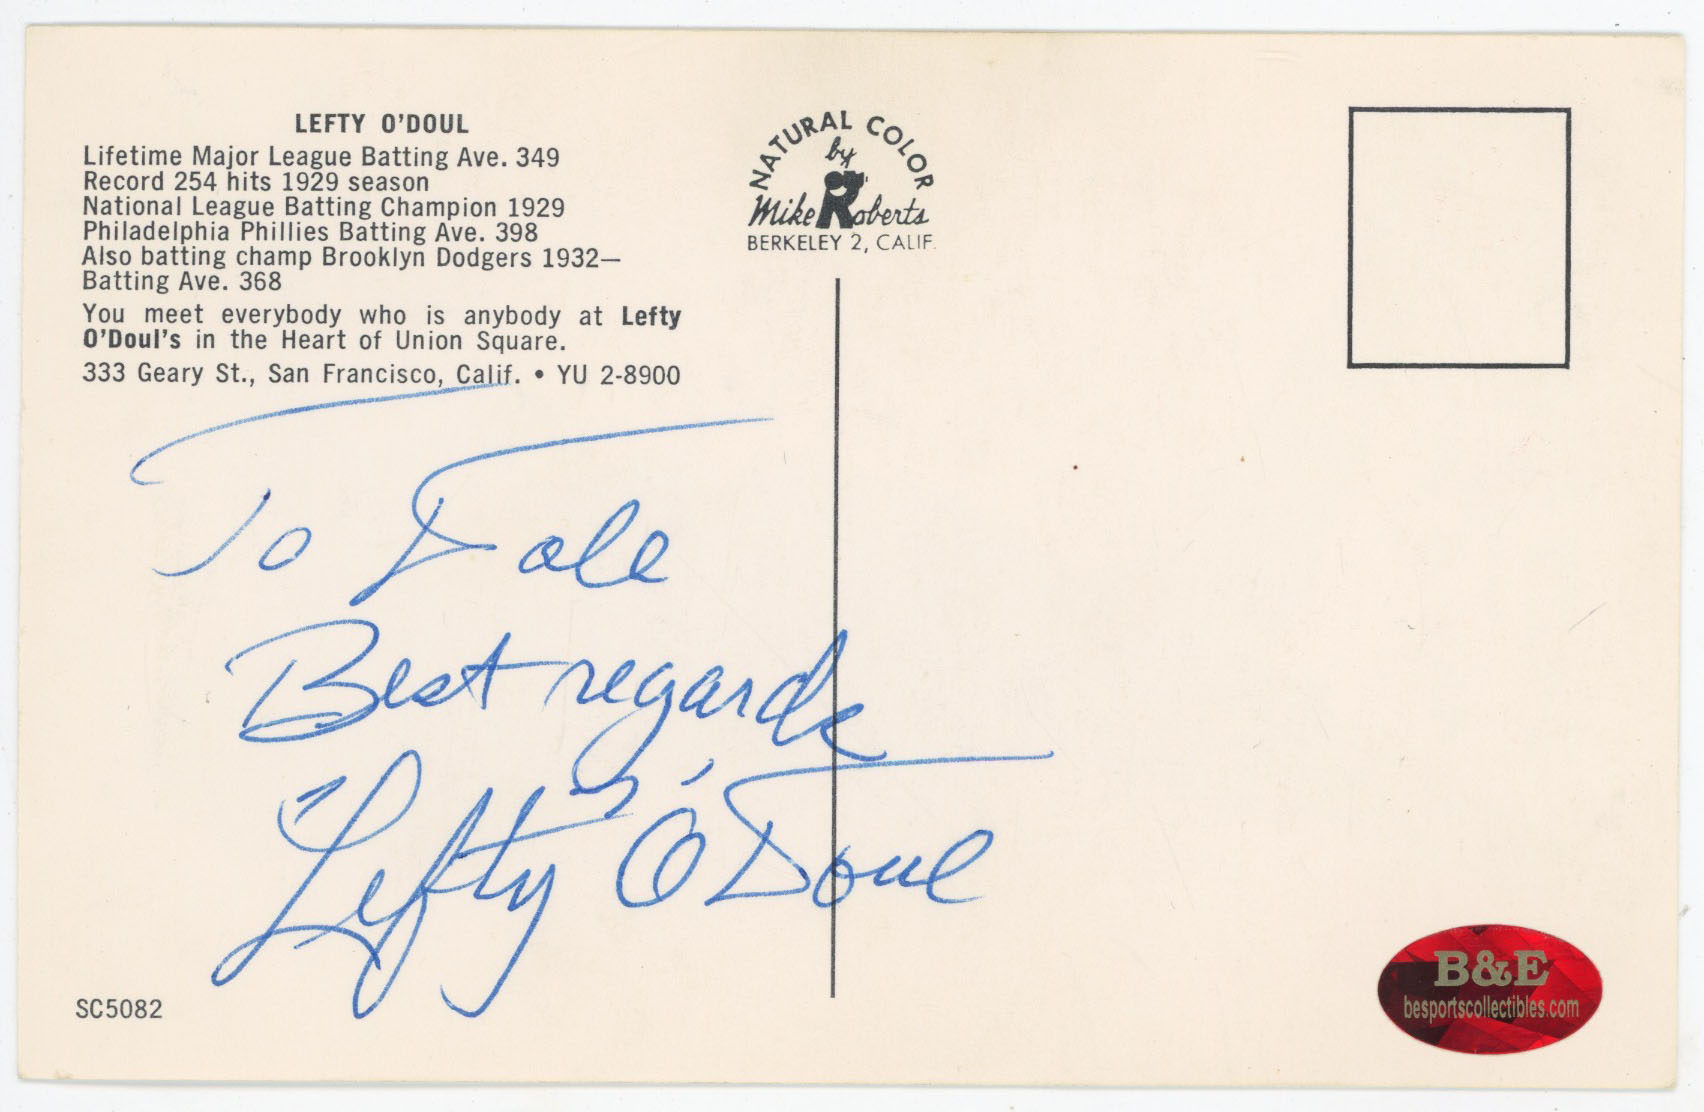 LEFTY O'DOUL
Lifetime Major League Batting Ave. 349
Record 254 hits 1929 season
National League Batting Champion 1929
Philadelphia Phillies Batting Ave. 398
Also batting champ Brooklyn Dodgers 1932—
Batting Ave. 368
You meet everybody who is anybody at Lefty
O'Doul's in the Heart of Union Square.
333 Geary St., San Francisco, Calif. • YU 2-8900
NATURAL COLOR
by
Mike Roberts
BERKELEY 2, CALIF.
To Dale
Best regards
"Lefty" O'Doul
SC5082
B&E
besportscollectibles.com